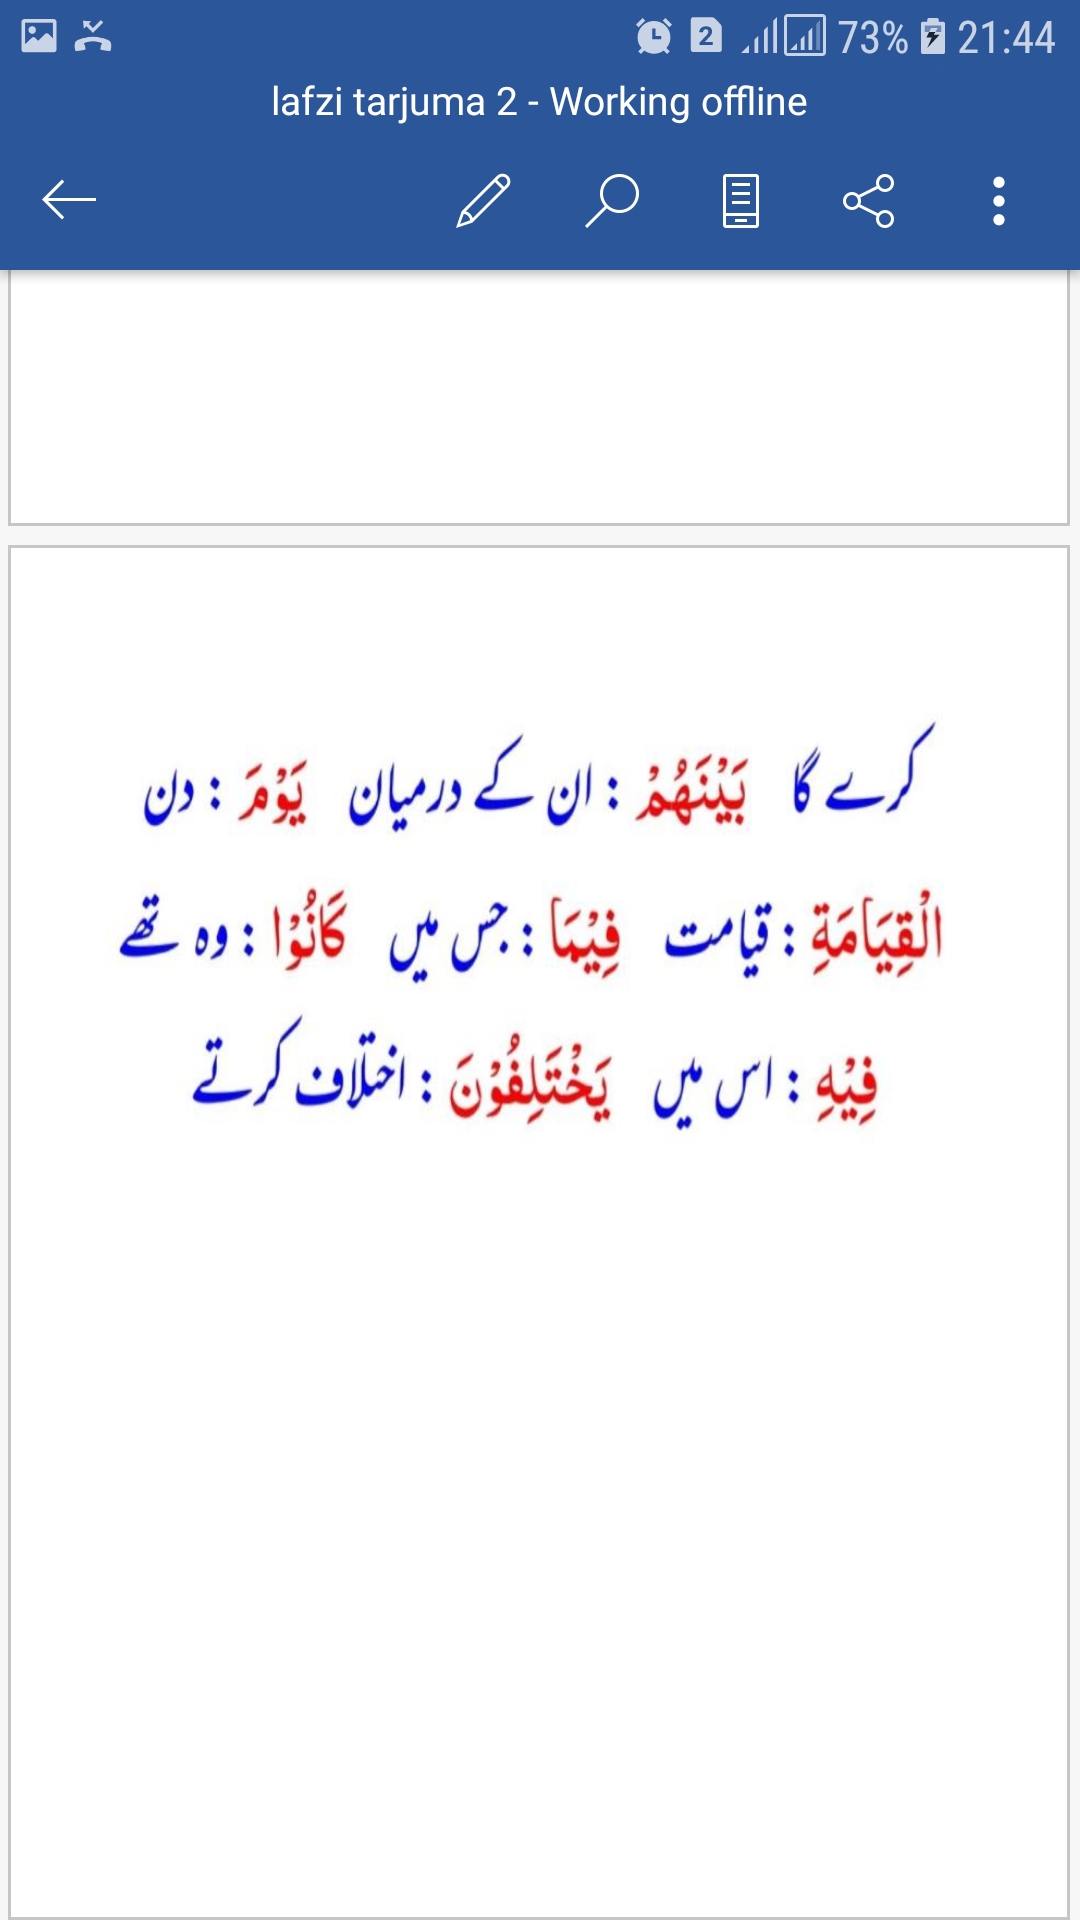 73% 21:44
lafzi tarjuma 2 - Working offline
کرے گا بَيْنَهُمْ : ان کے درمیان يَوْمَ : دن
الْقِيَامَةِ : قیامت فِيْمَا : جس میں كَانُوْا : وہ تھے
فِيْهِ : اس میں يَخْتَلِفُوْنَ : اختلاف کرتے